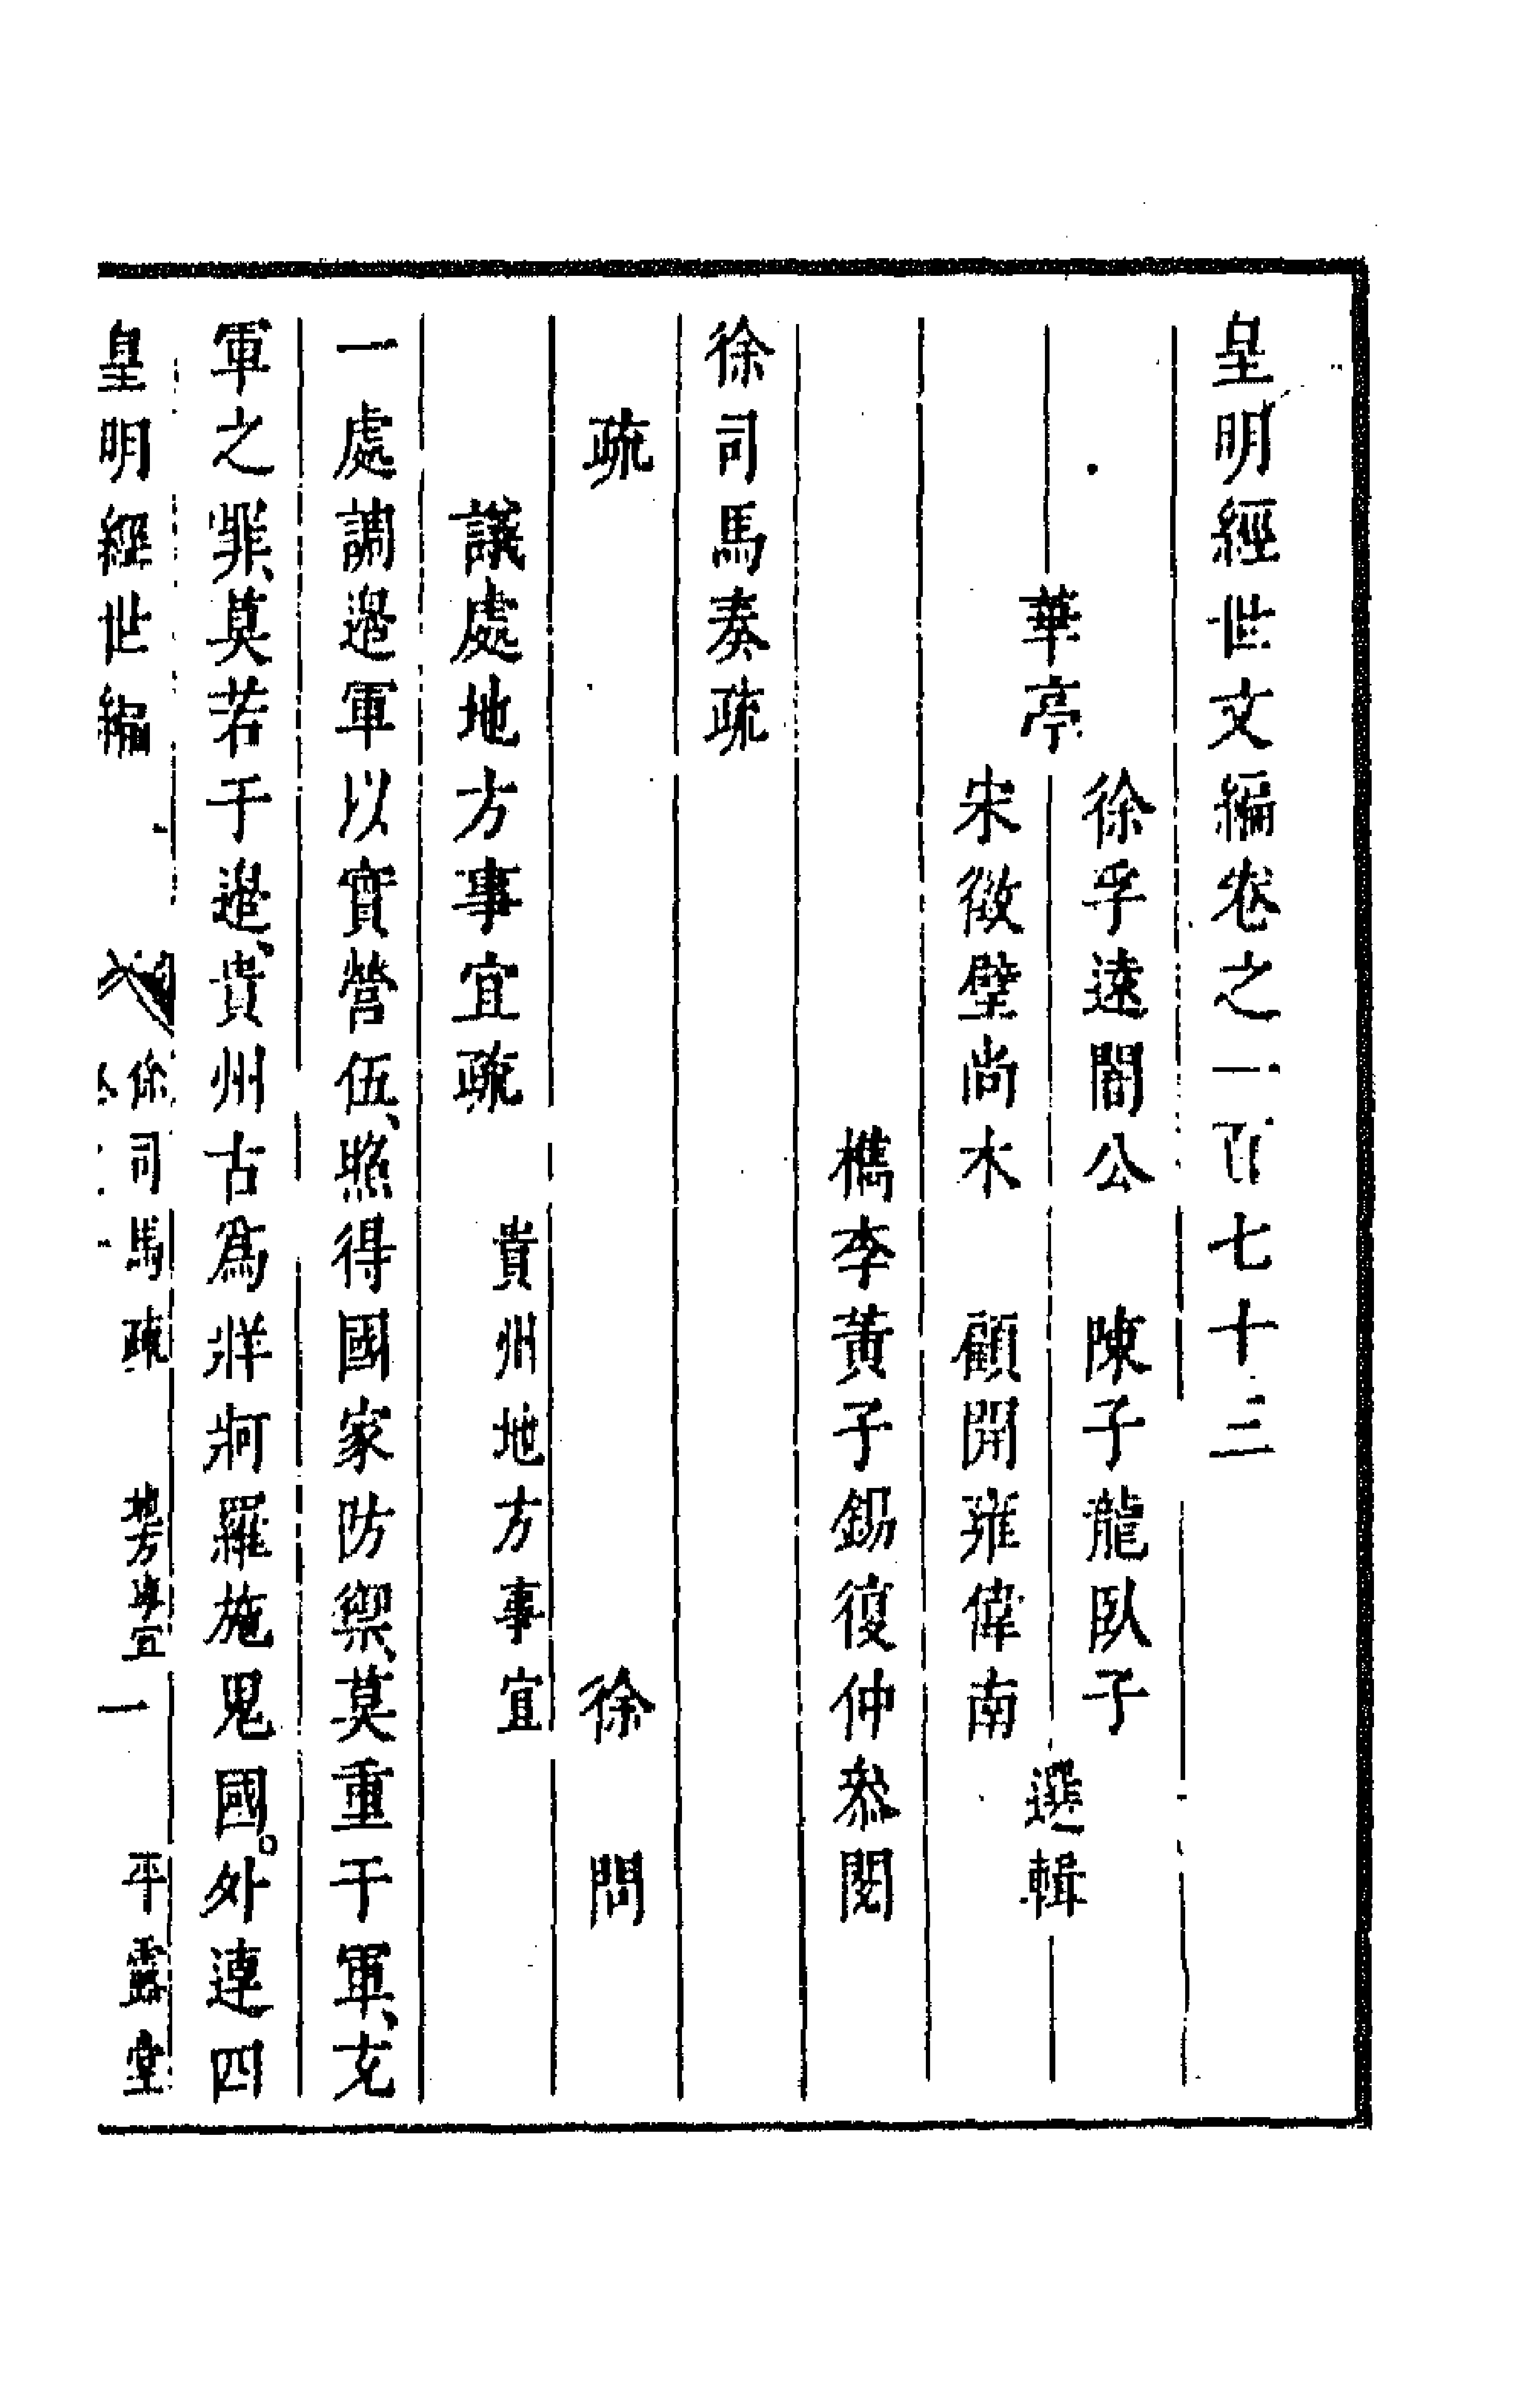 皇明經世文編卷之一百七十三
華亭
徐孚遠闇公 陳子龍臥子
宋徵璧尚木 顧開雍偉南
選輯
檇李黃子錫復仲參閱
徐司馬奏疏
疏 徐問
議處地方事宜疏 貴州地方事宜
一處調邊軍以實營伍、照得國家防禦、莫重于軍、充
軍之罪、莫若于邊、貴州古為牂牁羅施鬼國。外連四
皇明經世編
徐司馬疏 地方事宜 一 平露堂